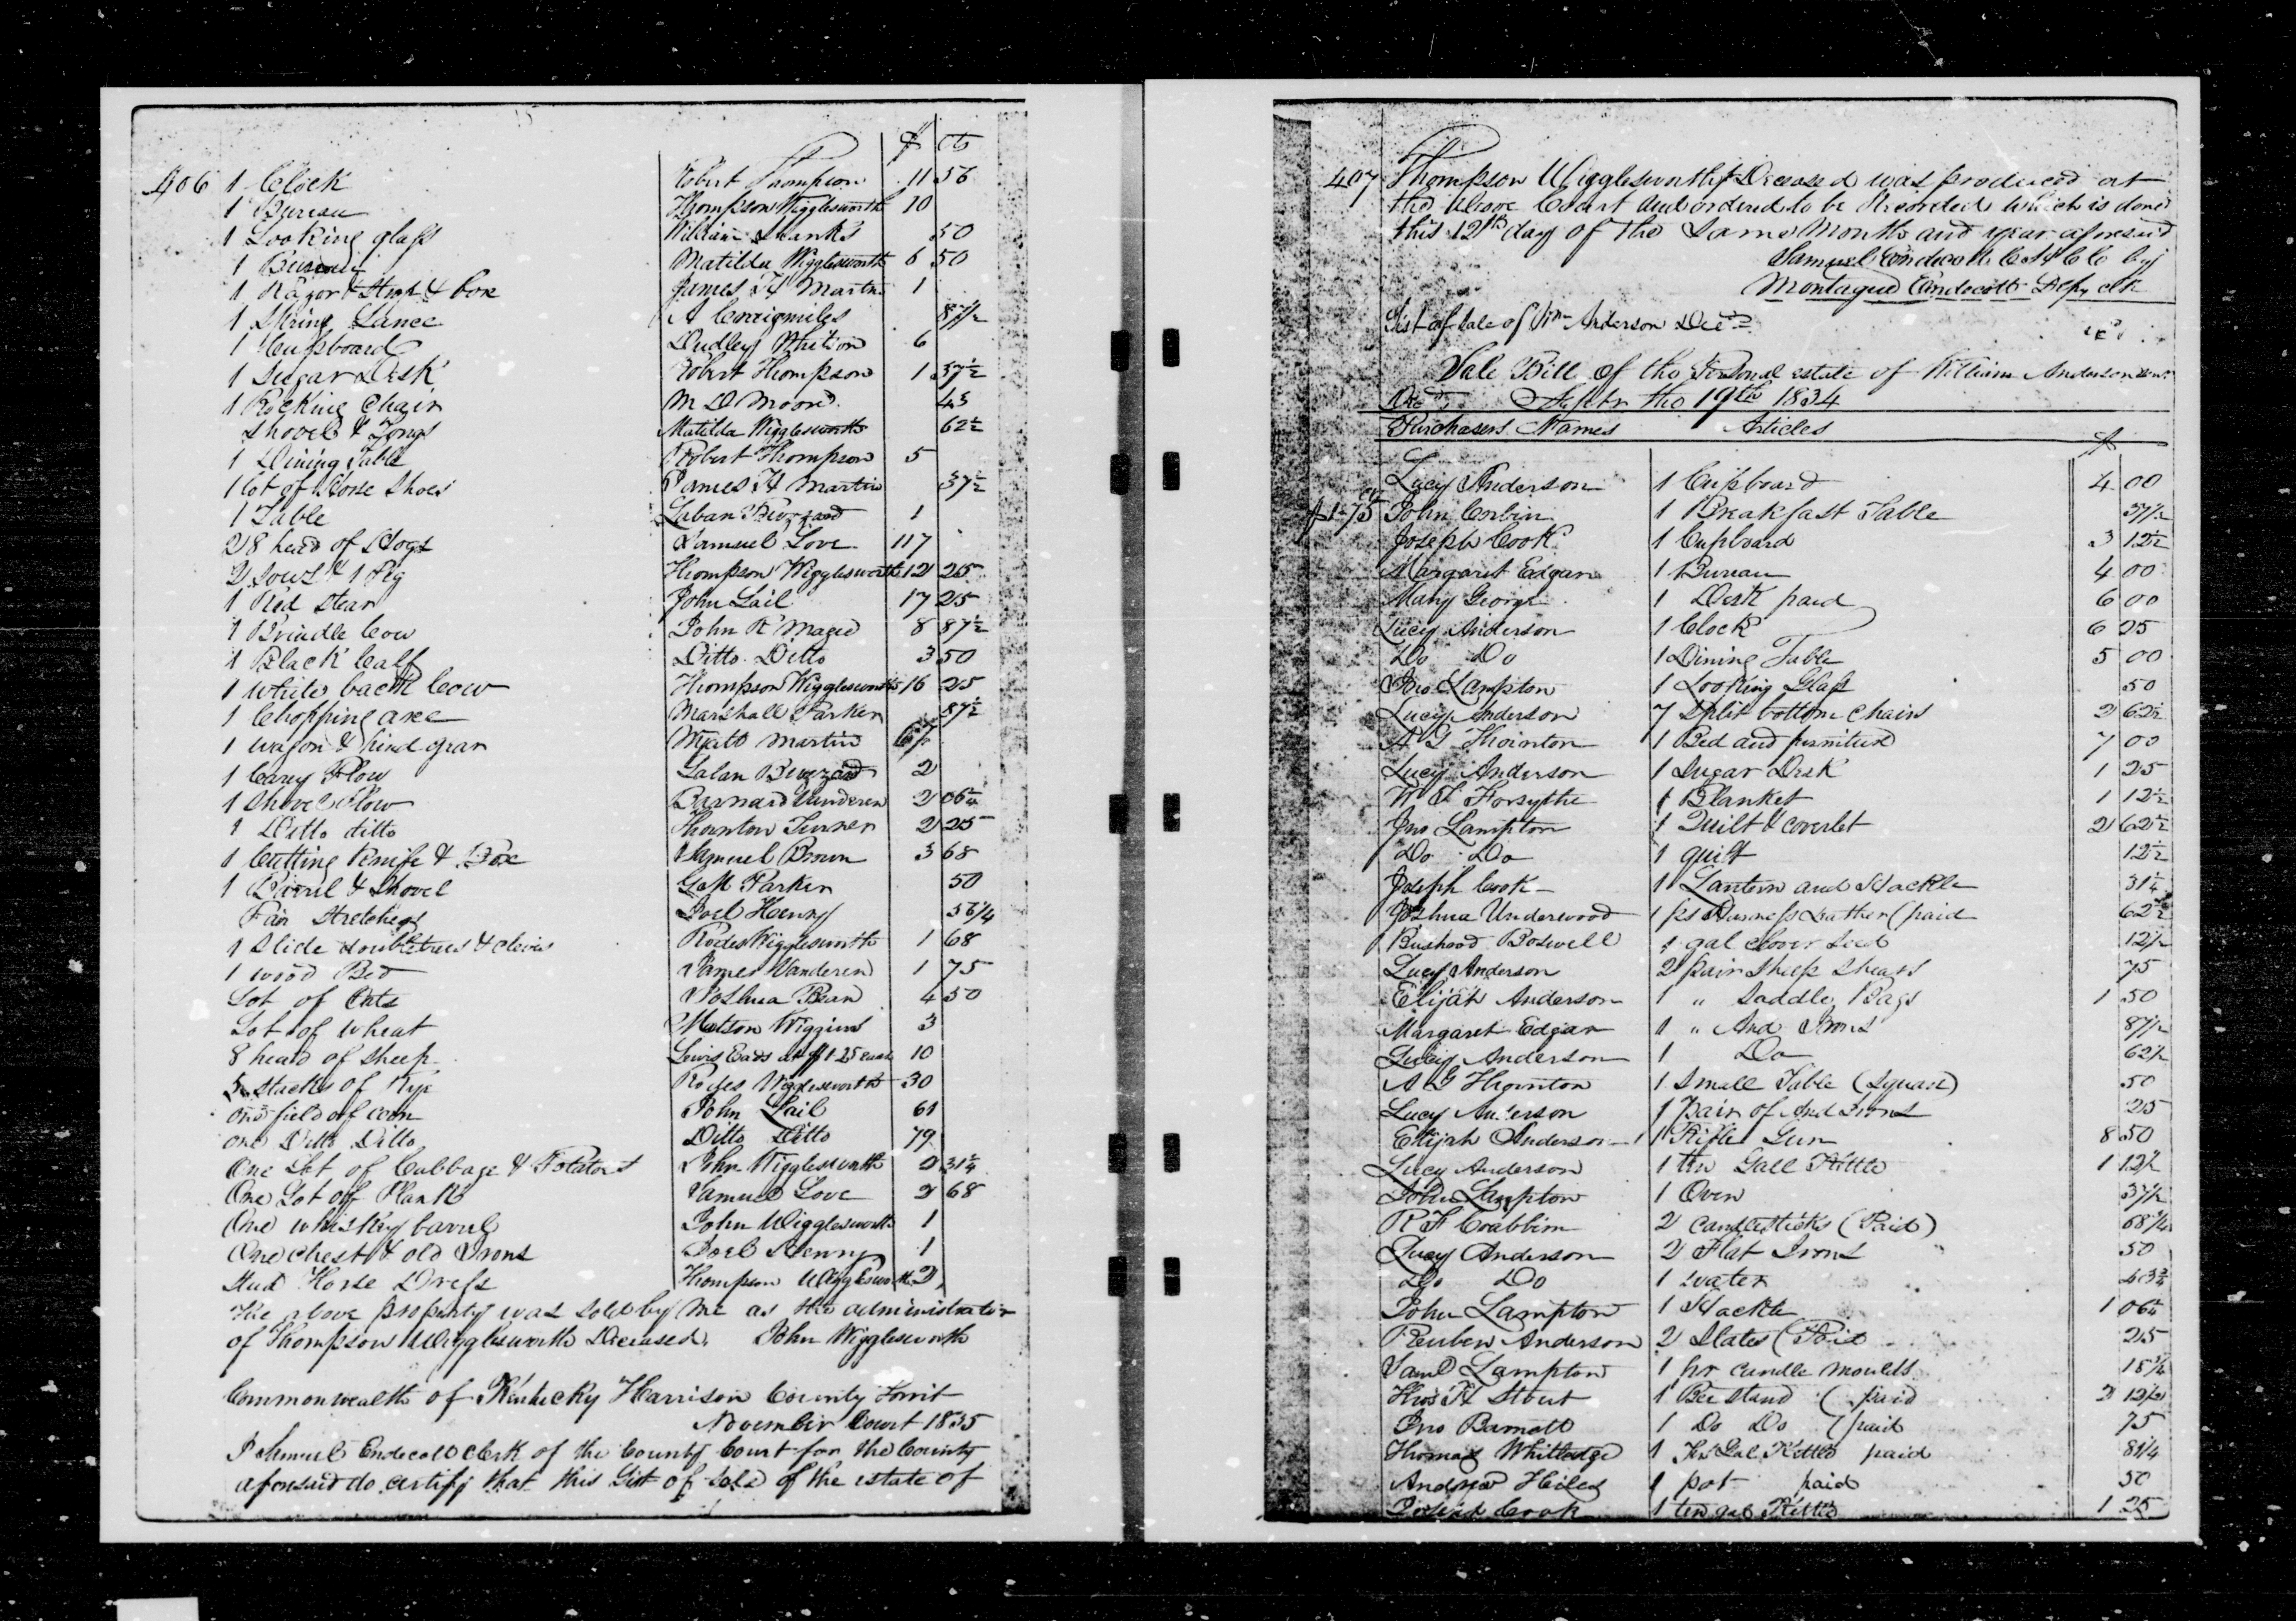 $ cts
406 1 Clock Robert Thompson 11 56
1 Bureau Thompson Wigglesworth 10
1 Looking glass William Shanks 50
1 Bureau Matilda Wigglesworth 6 50
1 Razor & Strop & box James H Martin 1
1 Spring Lance A Craigmiles 87 1/2
1 Cupboard Dudley 6
1 Sugar Desk Robert Thompson 1 37 1/2
1 Rocking Chair M D Moore 43
Shovel & Tongs Matilda Wigglesworth 62 1/2
1 Dining Table Robert Thompson 5
1 lot of Horse Shoes James H Martin 37 1/2
1 Table Laban 1
28 head of Hogs Samuel Love 117
2 Sows & 1 Pig Thompson Wigglesworth 12 25
1 Red Stear John Lail 17 25
1 Brindle Cow John R Magee 8 87 1/2
1 Black Calf Ditto Ditto 3 50
1 white back Cow Thompson Wigglesworth 16 25
1 Chopping axe Marshall Parker 87 1/2
1 wagon & hind gear Wyatt Martin
1 Carey Plow Laban 2
1 Shovel Plow Barnard Vanderen 2 06 1/4
1 Ditto ditto Thornton Turner 2 25
1 Cutting Knife & Box Samuel Brown 3 68
1 Barrel & Shovel G M Parker 50
Pair Stretchers Joel Henry 56 1/4
1 Slide doubletrees & clevis Rodes Wigglesworth 1 68
1 wood Bed James Vanderen 1 75
Lot of Oats Joshua Bean 4 50
Lot of wheat Matson Wiggins 3
8 head of sheep Lewis Eads at $1.25 each 10
stacks of Rye Rodes Wigglesworth 30
one field of corn John Lail 61
one Ditto Ditto Ditto Ditto 79
One Lot of Cabbage & Potatoes John Wigglesworth 2 31 1/4
One Lot of Plank Samuel Love 2 68
One whiskey barrel John Wigglesworth 1
One chest & old Irons Joel Henry 1
Stud Horse Dress Thompson Wigglesworth 2
The above property was sold by me as the administrator
of Thompson Wigglesworth Deceased. John Wigglesworth
Commonwealth of Kentucky Harrison County Towit
November Court 1835
I Samuel Endecott clerk of the County Court for the County
aforesaid do certify that this List of sale of the estate of
407 Thompson Wigglesworth Deceased was produced at
the above Court and ordered to be Recorded which is done
this 12th day of the same Month and year aforesaid
Samuel Endecott C H C C by
Montague Endecott Depy clk
List of Sale of Wm Anderson Decd
Sale Bill of the Personal estate of William Anderson Senr
Decd Septr the 19th 1834
Purchasers Names Articles $
Lucy Anderson 1 Cupboard 4 00
$1.75 John Corbin 1 Breakfast Table 37 1/2
Joseph Cook 1 Cupboard 3 12 1/2
Margaret Edgar 1 Bureau 4 00
Mary George 1 Desk paid 6 00
Lucy Anderson 1 Clock 6 25
Do Do 1 Dining Table 5 00
Jno Lampton 1 Looking Glass 50
Lucy Anderson 7 Split bottom Chairs 2 62 1/2
A G Thornton 1 Bed and furniture 7 00
Lucy Anderson 1 Sugar Desk 1 25
W S Forsythe 1 Blanket 1 12 1/2
Jno Lampton 1 Quilt & coverlet 2 62 1/2
Do Do 1 quilt 12 1/2
Joseph Cook 1 Lantern and Hackle 31 1/4
Joshua Underwood 1 ps Harness Leather (paid 62 1/2
Bushrod Boswell 1 gal clover seed 12 1/2
Lucy Anderson 2 pair sheep shears 75
Elijah Anderson 1 " Saddle Bags 1 50
Margaret Edgar 1 " And Irons 87 1/2
Lucy Anderson 1 Do 62 1/2
A G Thornton 1 Small Table (Square) 50
Lucy Anderson 1 Pair of And Irons 25
Elijah Anderson 1 Rifle Gun 8 50
Lucy Anderson 1 ten Gall Kettle 1 12 1/2
John Lampton 1 Oven 37 1/2
R F 2 Candlesticks (Paid) 68 3/4
Lucy Anderson 2 Flat Irons 50
Do Do 1 waiter 43 3/4
John Lampton 1 Hackle 1 06 1/4
Reuben Anderson 2 Slates (Paid 25
Saml Lampton 1 pr candle moulds 18 3/4
Thos H Stout 1 Bee stand (paid 2 12 1/2
Jno Barnett 1 Do Do (paid 75
Thomas Whitledge 1 Gal Kettle paid 81 1/4
Andrew Hiles 1 pot paid 50
Joseph Cook 1 ten gal Kettle 1 25